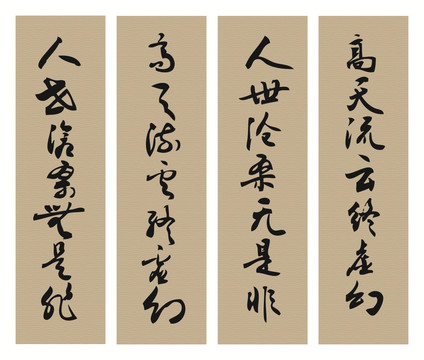 高天流云终虚幻
人世沧桑无是非
高天流雲終虚幻
人世滄桑無是非